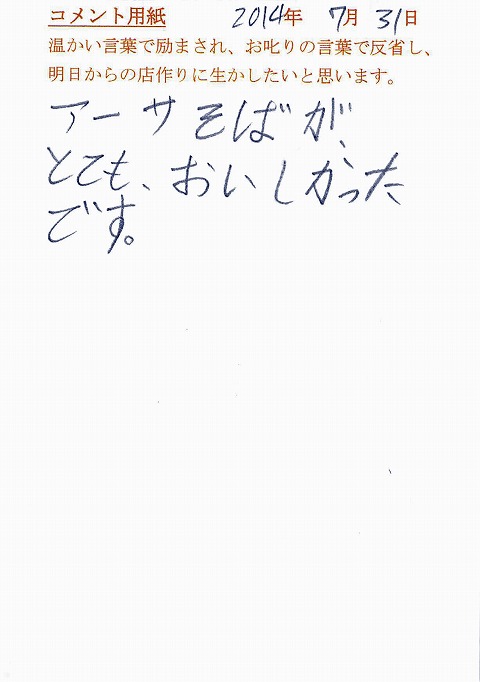 コメント用紙 2014年 7月 31日
温かい言葉で励まされ、お叱りの言葉で反省し、
明日からの店作りに生かしたいと思います。
アーサそばが、
とても、おいしかった
です。